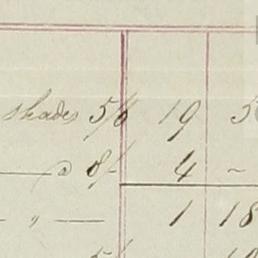 shades 5/6 19 5
— @ 8/- 4 ~
— " — 1 18